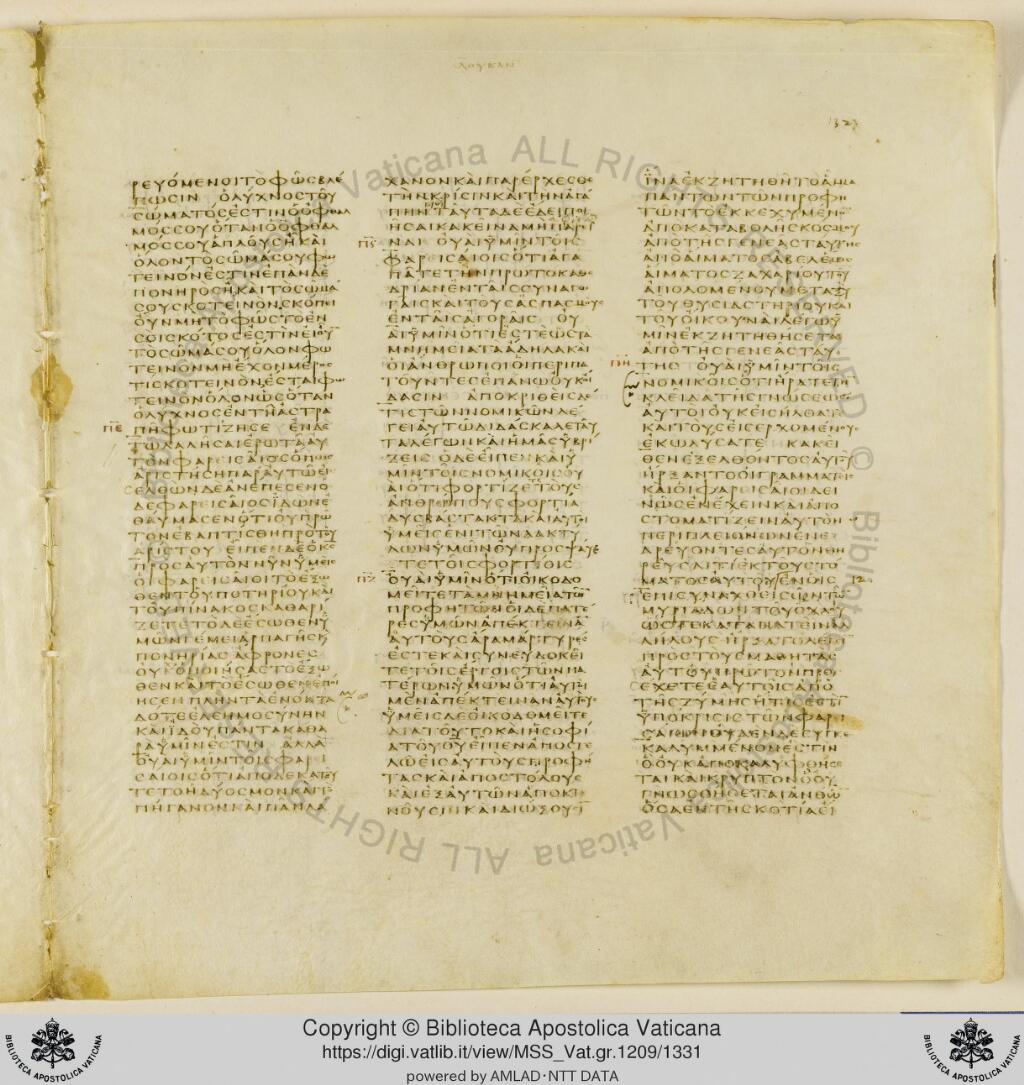 ΛΟΥΚΑΝ
1323
ΡΕΥΟΜΕΝΟΙΤΟΦΩΣΒΛΕ
ΠΩΣΙΝ ΟΛΥΧΝΟΣΤΟΥ
ΣΩΜΑΤΟΣΕΣΤΙΝΟΟΦΘΑΛ
ΜΟΣΣΟΥΟΤΑΝΟΟΦΘΑΛ
ΜΟΣΣΟΥΑΠΛΟΥΣΗΚΑΙ
ΟΛΟΝΤΟΣΩΜΑΣΟΥΦΩ
ΤΕΙΝΟΝΕΣΤΙΝΕΠΑΝΔΕ
ΠΟΝΗΡΟΣΗΚΑΙΤΟΣΩΜΑ
ΣΟΥΣΚΟΤΕΙΝΟΝΣΚΟΠΕΙ
ΟΥΝΜΗΤΟΦΩΣΤΟΕΝ
ΣΟΙΣΚΟΤΟΣΕΣΤΙΝΕΙΟΥ̅
ΤΟΣΩΜΑΣΟΥΟΛΟΝΦΩ
ΤΕΙΝΟΝΜΗΕΧΟΝΜΕΡΟΣ
ΤΙΣΚΟΤΕΙΝΟΝΕΣΤΑΙΦΩ
ΤΕΙΝΟΝΟΛΟΝΩΣΟΤΑΝ
ΟΛΥΧΝΟΣΕΝΤΗΑΣΤΡΑ
ΠΕ ΠΗΦΩΤΙΖΗΣΕ ΕΝΔΕ
ΤΩΛΑΛΗΣΑΙΕΡΩΤΑΑΥ
ΤΟΝΦΑΡΕΙΣΑΙΟΣΟΠΩΣ
ΑΡΙΣΤΗΣΗΠΑΡΑΥΤΩΕΙ
ΣΕΛΘΩΝΔΕΑΝΕΠΕΣΕΝΟ
ΔΕΦΑΡΕΙΣΑΙΟΣΙΔΩΝΕ
ΘΑΥΜΑΣΕΝΟΤΙΟΥΠΡΩ
ΤΟΝΕΒΑΠΤΙΣΘΗΠΡΟΤΟΥ
ΑΡΙΣΤΟΥ ΕΙΠΕΝΔΕΟΚ̅Σ̅
ΠΡΟΣΑΥΤΟΝΝΥΝΥΜΕΙΣ
ΟΙΦΑΡΕΙΣΑΙΟΙΤΟΕΞΩ
ΘΕΝΤΟΥΠΟΤΗΡΙΟΥΚΑΙ
ΤΟΥΠΙΝΑΚΟΣΚΑΘΑΡΙ
ΖΕΤΕΤΟΔΕΕΣΩΘΕΝΥ
ΜΩΝΓΕΜΕΙΑΡΠΑΓΗΣΚ
ΠΟΝΗΡΙΑΣΑΦΡΟΝΕΣ
ΟΥΧΟΠΟΙΗΣΑΣΤΟΕΞΩ
ΘΕΝΚΑΙΤΟΕΣΩΘΕΝΕΠΟΙ
ΗΣΕΝΠΛΗΝΤΑΕΝΟΝΤΑ
ΔΟΤΕΕΛΕΗΜΟΣΥΝΗΝ
ΚΑΙΙΔΟΥΠΑΝΤΑΚΑΘΑ
ΡΑΥΜΙΝΕΣΤΙΝ ΑΛΛΑ
ΟΥΑΙΥΜΙΝΤΟΙΣΦΑΡΕΙ
ΣΑΙΟΙΣΟΤΙΑΠΟΔΕΚΑΤΟΥ
ΤΕΤΟΗΔΥΟΣΜΟΝΚΑΙΤΟ
ΠΗΓΑΝΟΝΚΑΙΠΑΝΛΑ
ΧΑΝΟΝΚΑΙΠΑΡΕΡΧΕΣΘΕ
ΤΗΝΚΡΙΣΙΝΚΑΙΤΗΝΑΓΑ
ΠΗΝΤΟΥΘ̅Υ̅ΤΑΥΤΑΔΕΕΔΕΙΠΟΙ
ΗΣΑΙΚΑΚΕΙΝΑΜΗΠΑΡΕΙ
ΠϚ ΝΑΙ ΟΥΑΙΥΜΙΝΤΟΙΣ
ΦΑΡΕΙΣΑΙΟΙΣΟΤΙΑΓΑ
ΠΑΤΕΤΗΝΠΡΩΤΟΚΑΘΕ
ΔΡΙΑΝΕΝΤΑΙΣΣΥΝΑΓΩ
ΓΑΙΣΚΑΙΤΟΥΣΑΣΠΑΣΜΟΥΣ
ΕΝΤΑΙΣΑΓΟΡΑΙΣ ΟΥ
ΑΙΥΜΙΝΟΤΙΕΣΤΕΩΣΤΑ
ΜΝΗΜΕΙΑΤΑΑΔΗΛΑΚΑΙ
ΟΙΑΝΘΡΩΠΟΙΟΙΠΕΡΙΠΑ
ΤΟΥΝΤΕΣΕΠΑΝΩΟΥΚΟΙ
ΔΑΣΙΝ ΑΠΟΚΡΙΘΕΙΣΔΕ
ΤΙΣΤΩΝΝΟΜΙΚΩΝΛΕ
ΓΕΙΑΥΤΩΔΙΔΑΣΚΑΛΕΤΑΥ
ΤΑΛΕΓΩΝΚΑΙΗΜΑΣΥΒΡΙ
ΖΕΙΣ ΟΔΕΕΙΠΕΝΚΑΙΥ
ΜΙΝΤΟΙΣΝΟΜΙΚΟΙΣΟΥ
ΑΙΟΤΙΦΟΡΤΙΖΕΤΕΤΟΥΣ
ΑΝΘΡΩΠΟΥΣΦΟΡΤΙΑ
ΔΥΣΒΑΣΤΑΚΤΑΚΑΙΑΥΤΟΙ
ΥΜΕΙΣΕΝΙΤΩΝΔΑΚΤΥ
ΛΩΝΥΜΩΝΟΥΠΡΟΣΨΑΥΕ
ΤΕΤΟΙΣΦΟΡΤΙΟΙΣ
ΠΖ ΟΥΑΙΥΜΙΝΟΤΙΟΙΚΟΔΟ
ΜΕΙΤΕΤΑΜΝΗΜΕΙΑΤΩ̅
ΠΡΟΦΗΤΩΝΟΙΔΕΠΑΤΕ
ΡΕΣΥΜΩΝΑΠΕΚΤΕΙΝΑ̅
ΑΥΤΟΥΣΑΡΑΜΑΡΤΥΡΕΣ
ΕΣΤΕΚΑΙΣΥΝΕΥΔΟΚΕΙ
ΤΕΤΟΙΣΕΡΓΟΙΣΤΩΝΠΑ
ΤΕΡΩΝΥΜΩΝΟΤΙΑΥΤΟΙ
ΜΕΝΑΠΕΚΤΕΙΝΑΝΑΥΤΟΥΣ
ΥΜΕΙΣΔΕΟΙΚΟΔΟΜΕΙΤΕ
ΔΙΑΤΟΥΤΟΚΑΙΗΣΟΦΙ
ΑΤΟΥΘ̅Υ̅ΕΙΠΕΝΑΠΟΣΤΕ
ΛΩΕΙΣΑΥΤΟΥΣΠΡΟΦΗ
ΤΑΣΚΑΙΑΠΟΣΤΟΛΟΥΣ
ΚΑΙΕΞΑΥΤΩΝΑΠΟΚΤΕ
ΝΟΥΣΙΝΚΑΙΔΙΩΞΟΥΣΙ̅
ΙΝΑΕΚΖΗΤΗΘΗΤΟΑΙΜΑ
ΠΑΝΤΩΝΤΩΝΠΡΟΦΗ
ΤΩΝΤΟΕΚΚΕΧΥΜΕΝΟ̅
ΑΠΟΚΑΤΑΒΟΛΗΣΚΟΣΜΟΥ
ΑΠΟΤΗΣΓΕΝΕΑΣΤΑΥΤΗΣ
ΑΠΟΑΙΜΑΤΟΣΑΒΕΛΕΩΣ
ΑΙΜΑΤΟΣΖΑΧΑΡΙΟΥΤΟΥ
ΑΠΟΛΟΜΕΝΟΥΜΕΤΑΞΥ
ΤΟΥΘΥΣΙΑΣΤΗΡΙΟΥΚΑΙ
ΤΟΥΟΙΚΟΥΝΑΙΛΕΓΩΥ
ΜΙΝΕΚΖΗΤΗΘΗΣΕΤΑΙ
ΑΠΟΤΗΣΓΕΝΕΑΣΤΑΥ
ΠΗ ΤΗΣ ΟΥΑΙΥΜΙΝΤΟΙΣ
ΝΟΜΙΚΟΙΣΟΤΙΗΡΑΤΕΤΗ̅
ΚΛΕΙΔΑΤΗΣΓΝΩΣΕΩΣ
ΑΥΤΟΙΟΥΚΕΙΣΗΛΘΑΤΕ
ΚΑΙΤΟΥΣΕΙΣΕΡΧΟΜΕΝΟΥΣ
ΕΚΩΛΥΣΑΤΕ ΚΑΚΕΙ
ΘΕΝΕΞΕΛΘΟΝΤΟΣΑΥΤΟΥ
ΗΡΞΑΝΤΟΟΙΓΡΑΜΜΑΤΕΙΣ
ΚΑΙΟΙΦΑΡΕΙΣΑΙΟΙΔΕΙ
ΝΩΣΕΝΕΧΕΙΝΚΑΙΑΠΟ
ΣΤΟΜΑΤΙΖΕΙΝΑΥΤΟΝ
ΠΕΡΙΠΛΕΙΟΝΩΝΕΝΕ
ΔΡΕΥΟΝΤΕΣΑΥΤΟΝΘΗ
ΡΕΥΣΑΙΤΙΕΚΤΟΥΣΤΟ
ΜΑΤΟΣΑΥΤΟΥΕΝΟΙΣ 12
ΕΠΙΣΥΝΑΧΘΕΙΣΩΝΤΩ̅
ΜΥΡΙΑΔΩΝΤΟΥΟΧΛΟΥ
ΩΣΤΕΚΑΤΑΠΑΤΕΙΝΑΛ
ΛΗΛΟΥΣ ΗΡΞΑΤΟΛΕΓΕΙ̅
ΠΡΟΣΤΟΥΣΜΑΘΗΤΑΣ
ΑΥΤΟΥΠΡΩΤΟΝΠΡΟΣ
ΕΧΕΤΕΕΑΥΤΟΙΣΑΠΟ
ΤΗΣΖΥΜΗΣΗΤΙΣΕΣΤΙ̅
ΥΠΟΚΡΙΣΙΣΤΩΝΦΑΡΕΙ
ΣΑΙΩΝΟΥΔΕΝΔΕΣΥΓΚΕ
ΚΑΛΥΜΜΕΝΟΝΕΣΤΙΝ
ΟΟΥΚΑΠΟΚΑΛΥΦΘΗΣΕ
ΤΑΙΚΑΙΚΡΥΠΤΟΝΟΟΥ
ΓΝΩΣΘΗΣΕΤΑΙΑΝΘΩ̅
ΟΣΑΕΝΤΗΣΚΟΤΙΑΕΙ
Copyright © Biblioteca Apostolica Vaticana
https://digi.vatlib.it/view/MSS_Vat.gr.1209/1331
powered by AMLAD·NTT DATA
BIBLIOTECA APOSTOLICA VATICANA
BIBLIOTECA APOSTOLICA VATICANA